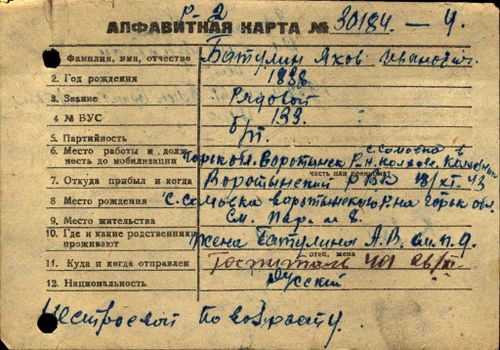 Р-2
АЛФАВИТНАЯ КАРТА № 30184.-4.
1. Фамилия, имя, отчество Батулин Яков Иванович.
2. Год рождения 1898
3. Звание Рядовой
4 № ВУС 133.
5. Партийность б/п.
с. Сомовка в
6. Место работы и должность до мобилизации Горьк. обл. Воротынск. Р.н. колхоз.
7. Откуда прибыл и когда Воротынский РВК
8 Место рождения С. Сомовка Воротынского Р-на Горьк обл.
9. Место жительства См. пар. №8.
10. Где и какие родственники проживают жена Батулина А.В. см. п. 9.
отец, жена
11. Куда и когда отправлен Госпиталь
12. Национальность Русский
Нестроевой по возрасту.